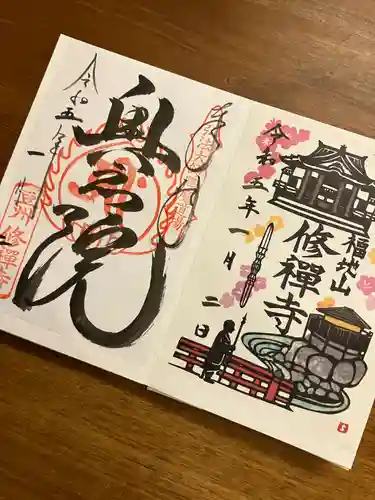 令和五年一
奥之院
豆州 修禅寺
令和五年一月二日
福地山
修禪寺